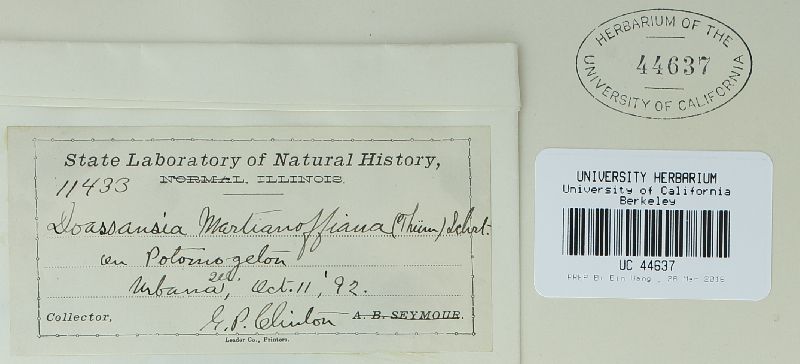 HERBARIUM OF THE
44637
UNIVERSITY OF CALIFORNIA
State Laboratory of Natural History,
11433
NORMAL, ILLINOIS.
Doassansia Martianoffiana (Thüm) Schrt.
on Potomogeton
Urbana, Ill, Oct. 11, '92.
Collector, G. P. Clinton A. B. SEYMOUR.
Leader Co., Printers.
UNIVERSITY HERBARIUM
University of California
Berkeley
UC 44637